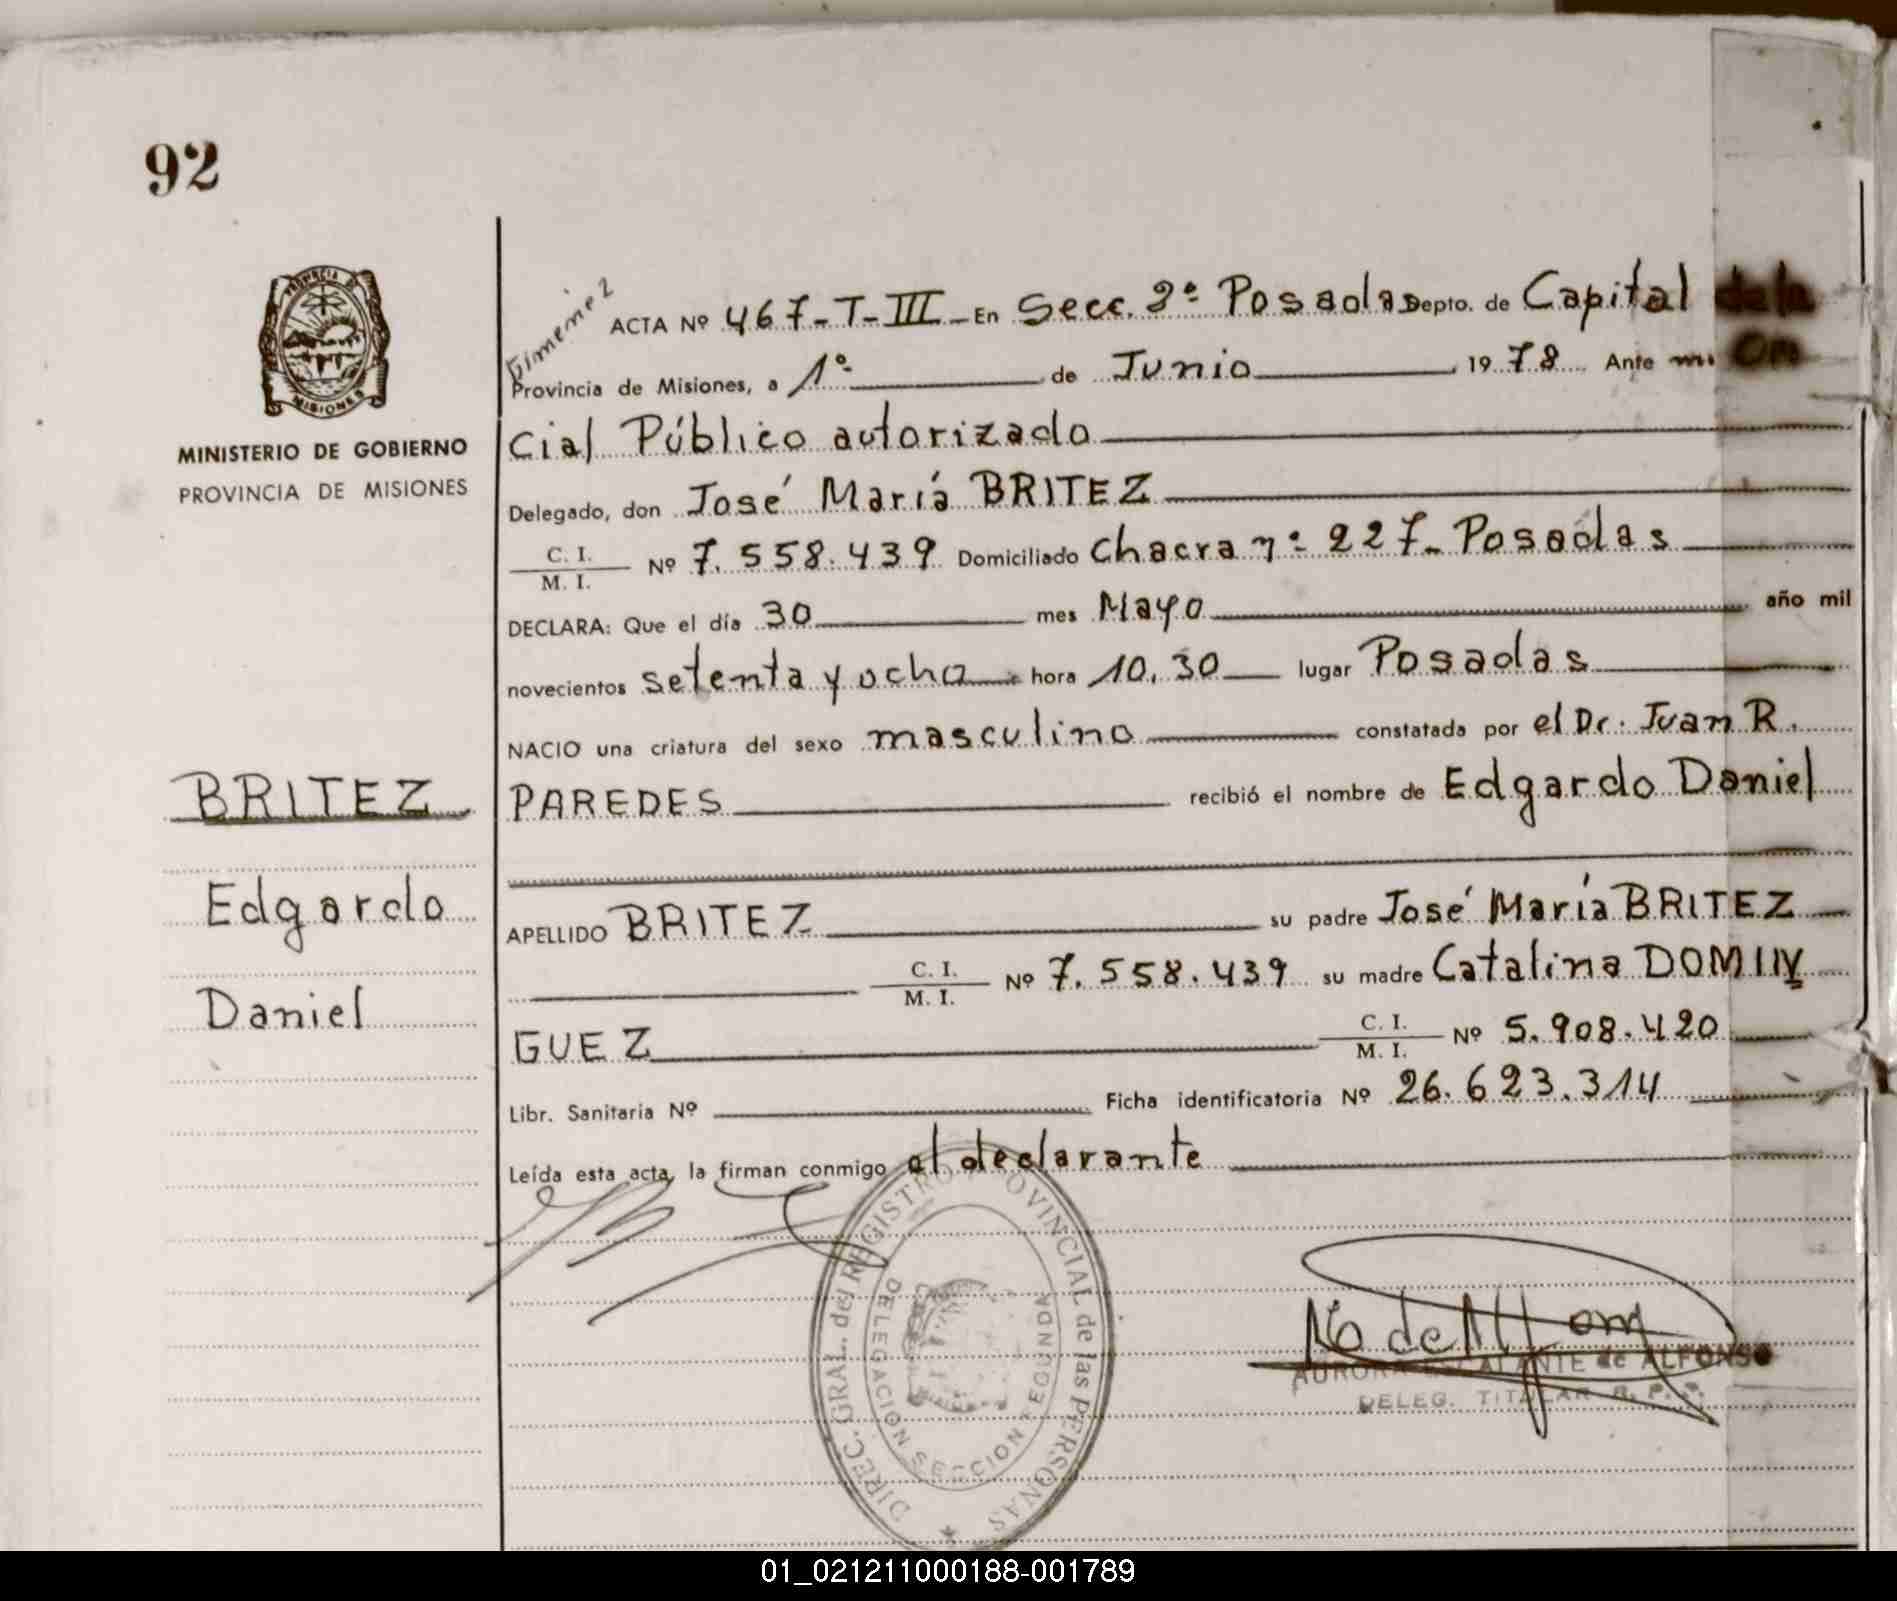 92
PROVINCIA D
MISIONES
MINISTERIO DE GOBIERNO
PROVINCIA DE MISIONES
BRITEZ
Edgardo
Daniel
Gimenez
ACTA Nº 467-T-III - En Secc. 2º Posadas Depto. de Capital de la
Provincia de Misiones, a 1º de Junio 1978 Ante mi Ofi
cial Público autorizado
Delegado, don José María BRITEZ
C. I.
M. I. Nº 7.558.439 Domiciliado Chacra nº 227- Posadas
DECLARA: Que el día 30 mes Mayo año mil
novecientos setenta y ocho hora 10,30 lugar Posadas
NACIO una criatura del sexo masculino constatada por el Dr. Juan R.
PAREDES recibió el nombre de Edgardo Daniel
APELLIDO BRITEZ su padre José María BRITEZ
C. I.
M. I. Nº 7.558.439 su madre Catalina DOMIN
GUEZ C. I.
M. I. Nº 5.908.420
Libr. Sanitaria Nº Ficha identificatoria Nº 26.623.314
Leída esta acta, la firman conmigo el declarante
DIREC. GRAL. del REGISTRO PROVINCIAL de las PERSONAS
DELEGACION SECCION SEGUNDA
AURORA ESCALANTE de ALFONSO
DELEG. TITULAR R. P. P.
01_021211000188-001789